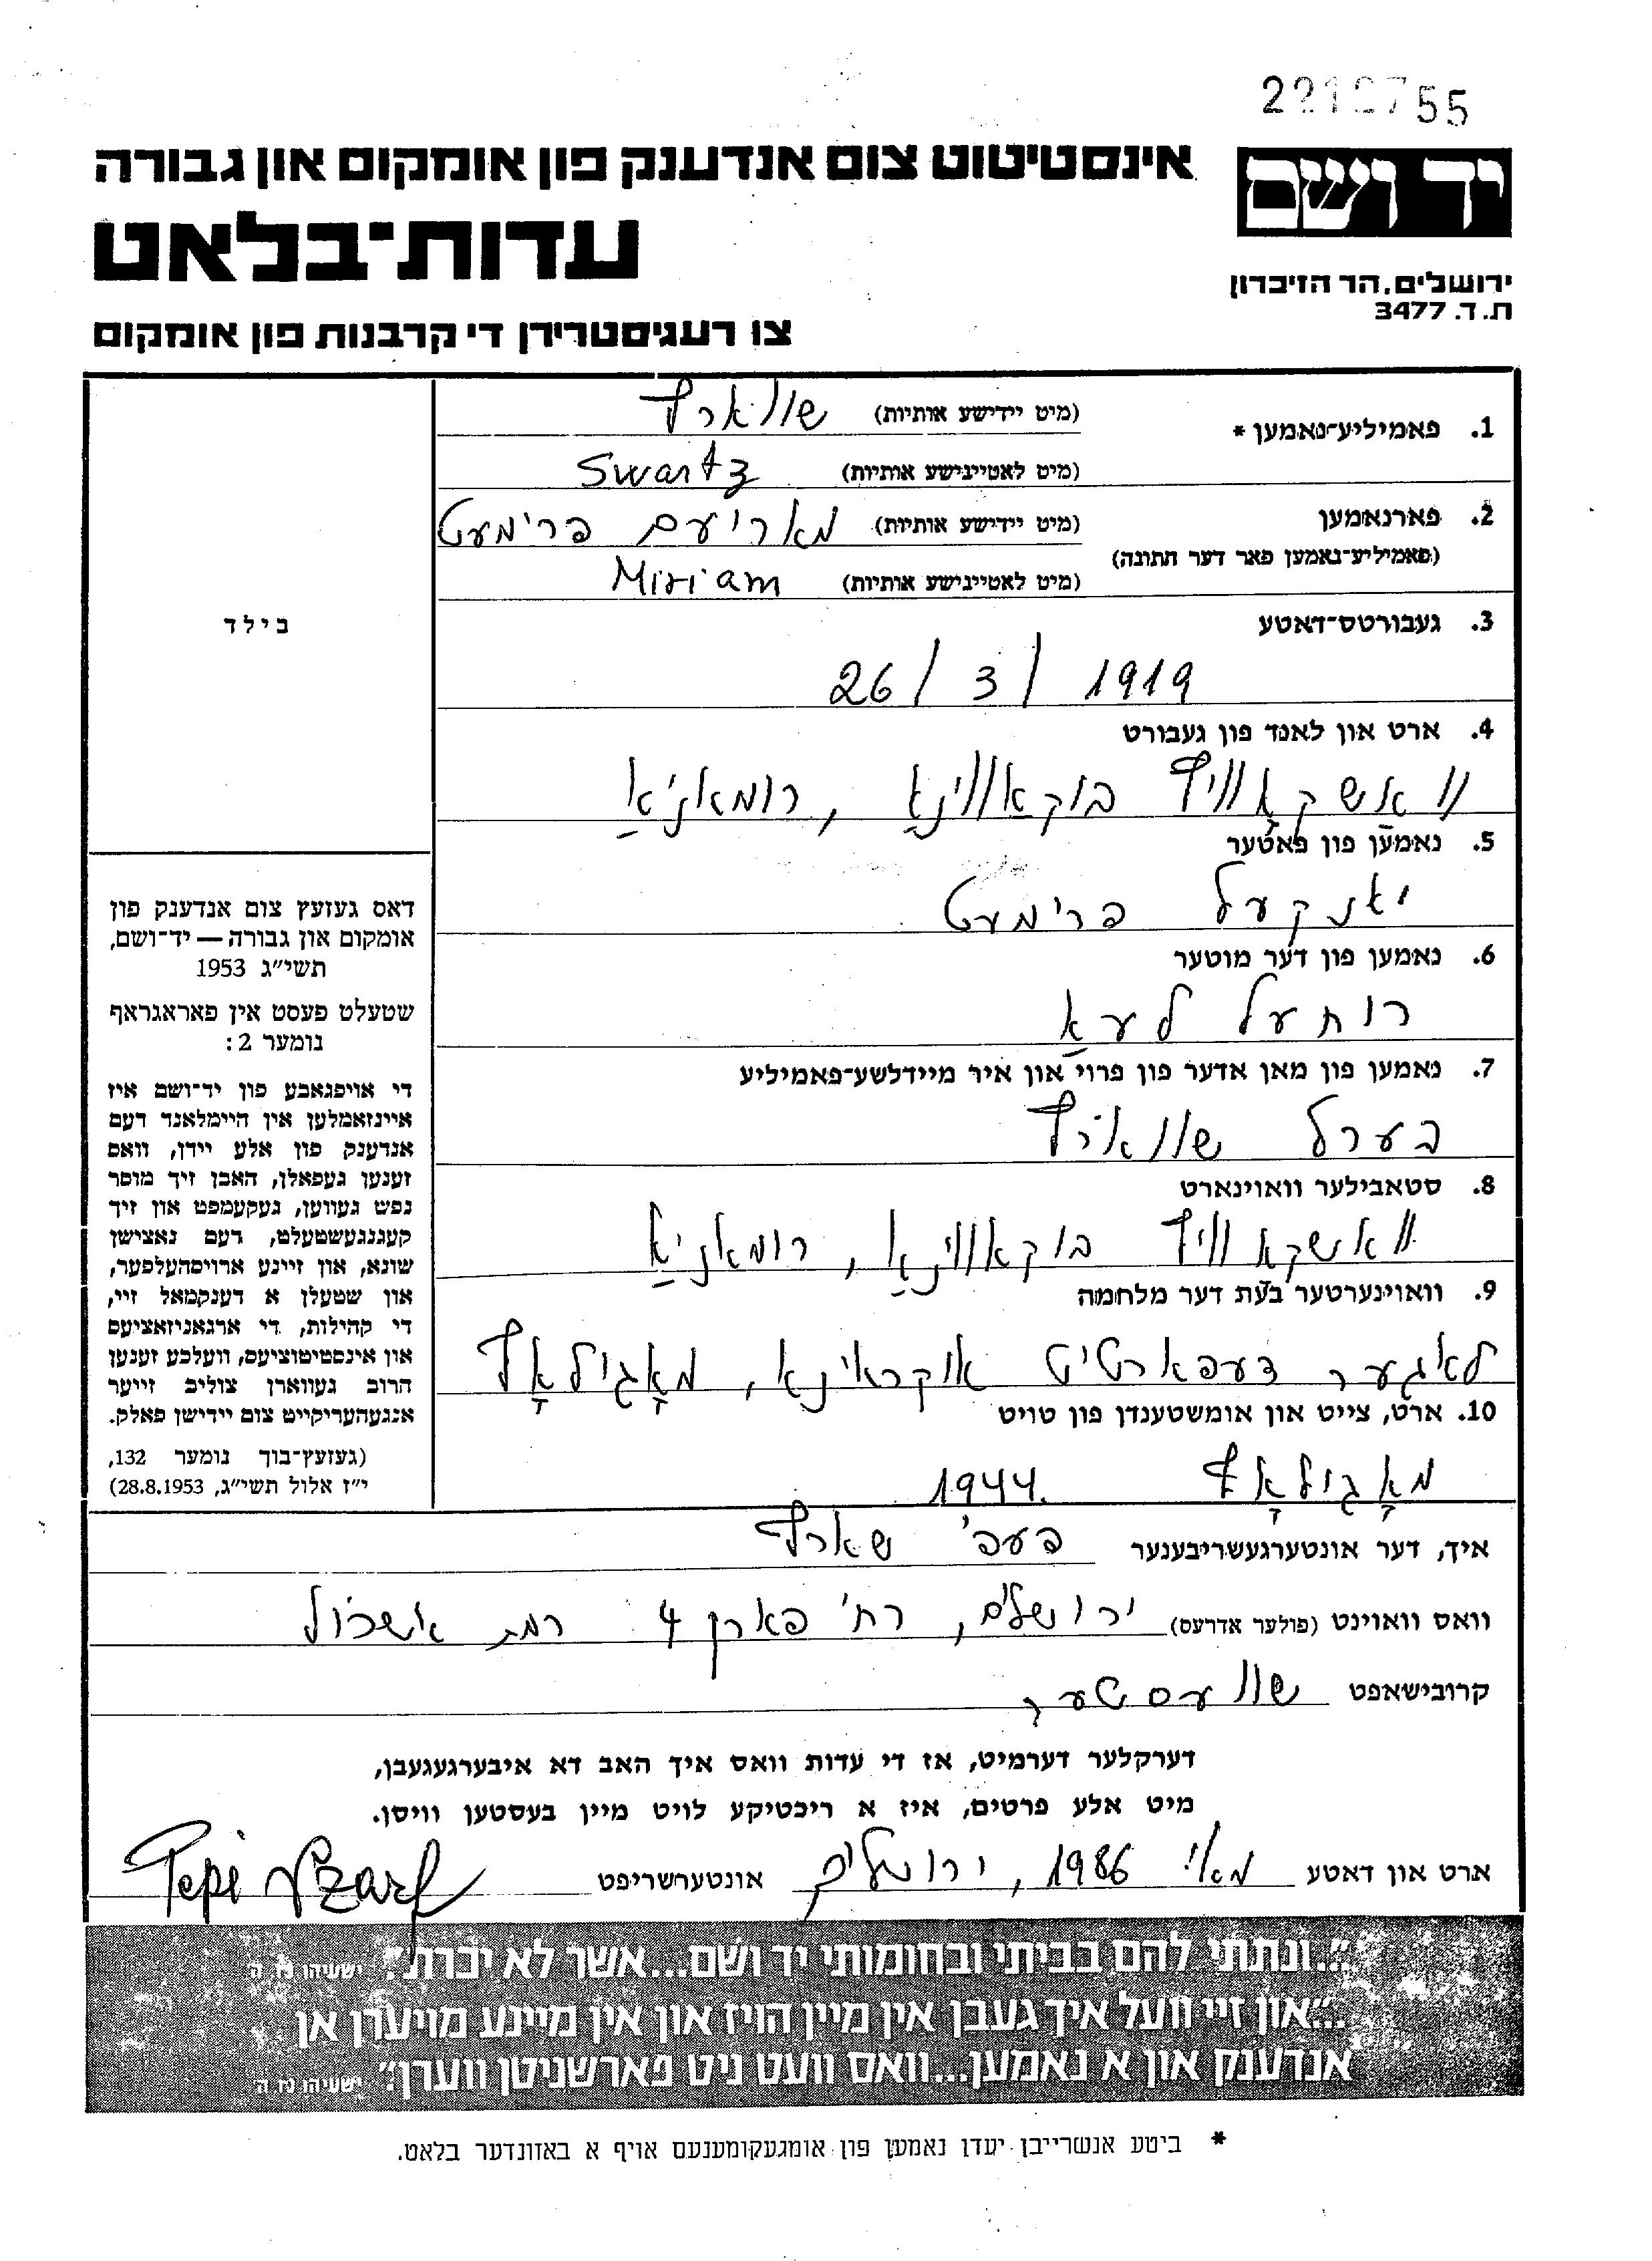 55
אינסטיטוט צום אנדענק פון אומקום און גבורה
יד ושם
עדות־בלאט
ירושלים, הר הזיכרון
ת.ד. 3477
צו רעגיסטרירן די קרבנות פון אומקום
1. פאמיליע־נאמען *
(מיט יידישע אותיות) שווארץ
(מיט לאטייניישע אותיות) Swartz
2. פארנאמען
(פאמיליע־נאמען פאר דער חתונה)
(מיט יידישע אותיות) מאריעם פרימעט
(מיט לאטייניישע אותיות) Miriam
3. געבורטס־דאטע
26/3/1919
4. ארט און לאנד פון געבורט
וואַשקאָוויץ בוקאַווינאַ, רומאַניאַ
5. נאמען פון פאטער
יאנקעל פרימעט
6. נאמען פון דער מוטער
רוחעל לעאַ
7. נאמען פון מאן אדער פון פרוי און איר מיידלשע־פאמיליע
בערל שווארץ
8. סטאבילער וואוינארט
וואשקאוויץ בוקאווינאַ, רומאניאַ
9. וואוינערטער בעת דער מלחמה
לאגער דעפארטיט אוקראינא, מאָגילאָץ
10. ארט, צייט און אומשטענדן פון טויט
מאָגילאָץ 1944.
בילד
דאס געזעץ צום אנדענק פון
אומקום און גבורה — יד־ושם,
תשי"ג 1953
שטעלט פעסט אין פאראגראף
נומער 2:
די אויפגאבע פון יד־ושם איז
איינזאמלען אין היימלאנד דעם
אנדענק פון אלע יידן, וואס
זענען געפאלן, האבן זיך מוסר
נפש געווען, געקעמפט און זיך
קעגנגעשטעלט, דעם נאצישן
שונא, און זיינע ארויסהעלפער,
און שטעלן א דענקמאל זיי,
די קהילות, די ארגאניזאציעס
און אינסטיטוציעס, וועלכע זענען
חרוב געווארן צוליב זייער
אנגעהעריקייט צום יידישן פאלק.
(געזעץ־בוך נומער 132,
י"ז אלול תשי"ג, 28.8.1953)
איך, דער אונטערגעשריבענער פעפי שארף
וואס וואוינט (פולער אדרעס) ירושלים, רח' פארן 4 רמת אשכול
קרובישאפט שוועסטער
דערקלער דערמיט, אז די עדות וואס איך האב דא איבערגעגעבן,
מיט אלע פרטים, איז א ריכטיקע לויט מיין בעסטען וויסן.
ארט און דאטע מאי 1986, ירושלים אונטערשריפט Pepi Szarf
"...ונתתי להם בביתי ובחומותי יד ושם...אשר לא יכרת." ישעיהו נו, ה'
"...און זיי וועל איך געבן אין מיין הויז און אין מיינע מויערן אן
אנדענק און א נאמען...וואס וועט ניט פארשניטן ווערן." ישעיהו נו, ה'
* ביטע אנשרייבן יעדן נאמען פון אומגעקומענעם אויף א באזונדער בלאט.